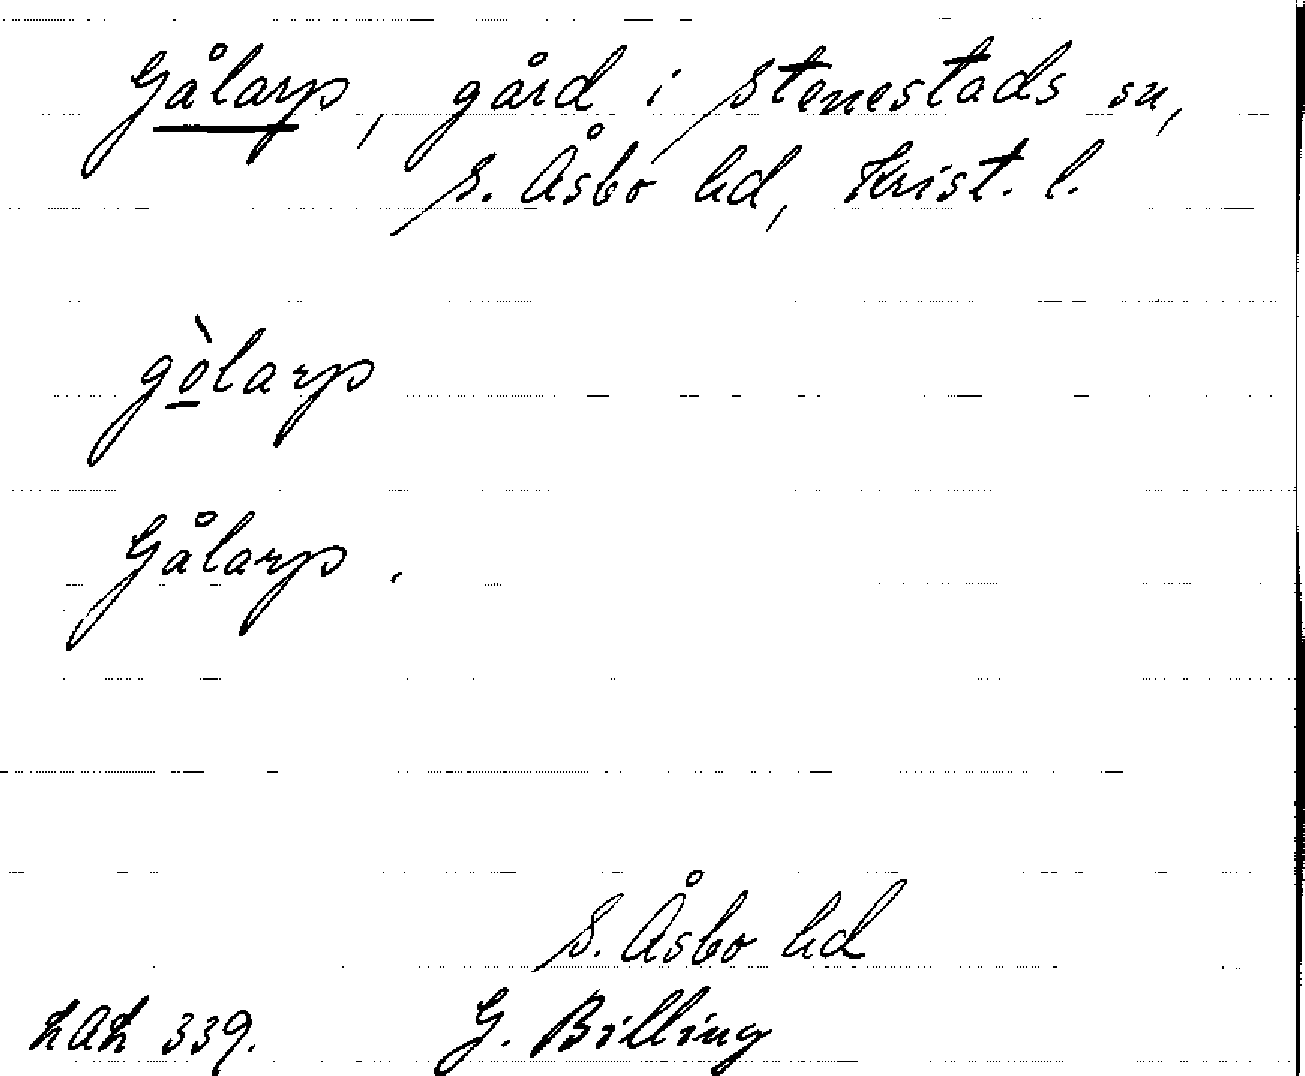 Gålarp, gård i Stenestads sn,
S. Åsbo hd, Krist. l.
gòlarp
Gålarp.
S. Åsbo hd
LAL 339. G. Billing